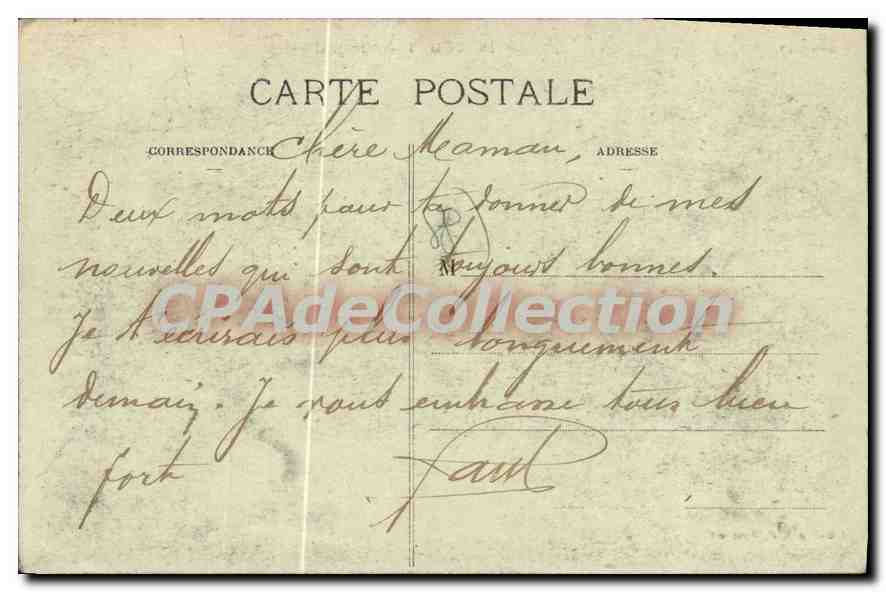 CARTE POSTALE
CORRESPONDANCE Chère Maman, ADRESSE
Deux mots pour te donner de mes
nouvelles qui sont toujours bonnes.
M
CPAdeCollection.com
Je t'écrirais plus longuement
demain. Je vous embrasse tous bien
fort Paul